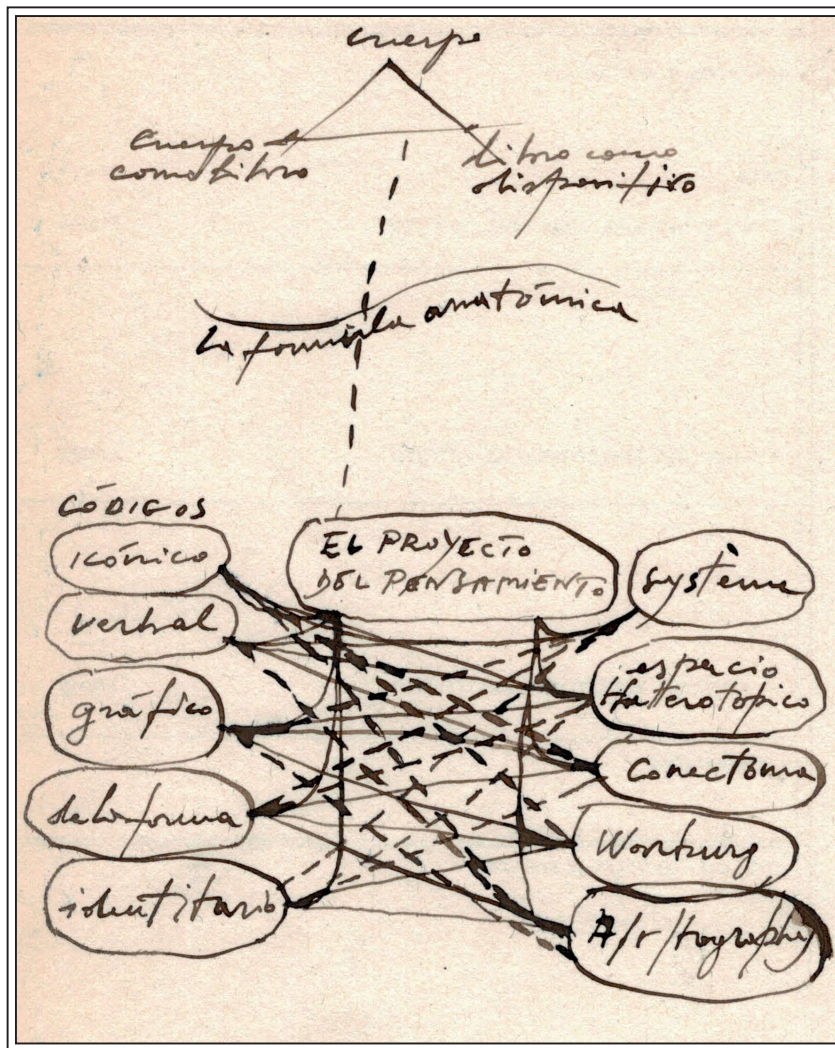 cuerpo
cuerpo
como libro
libro como
dispositivo
la formula anatómica
CÓDIGOS
icónico
verbal
gráfico
de la forma
identitario
EL PROYECTO
DEL PENSAMIENTO
système
espacio
Heterotópico
Conectoma
A/r/tography